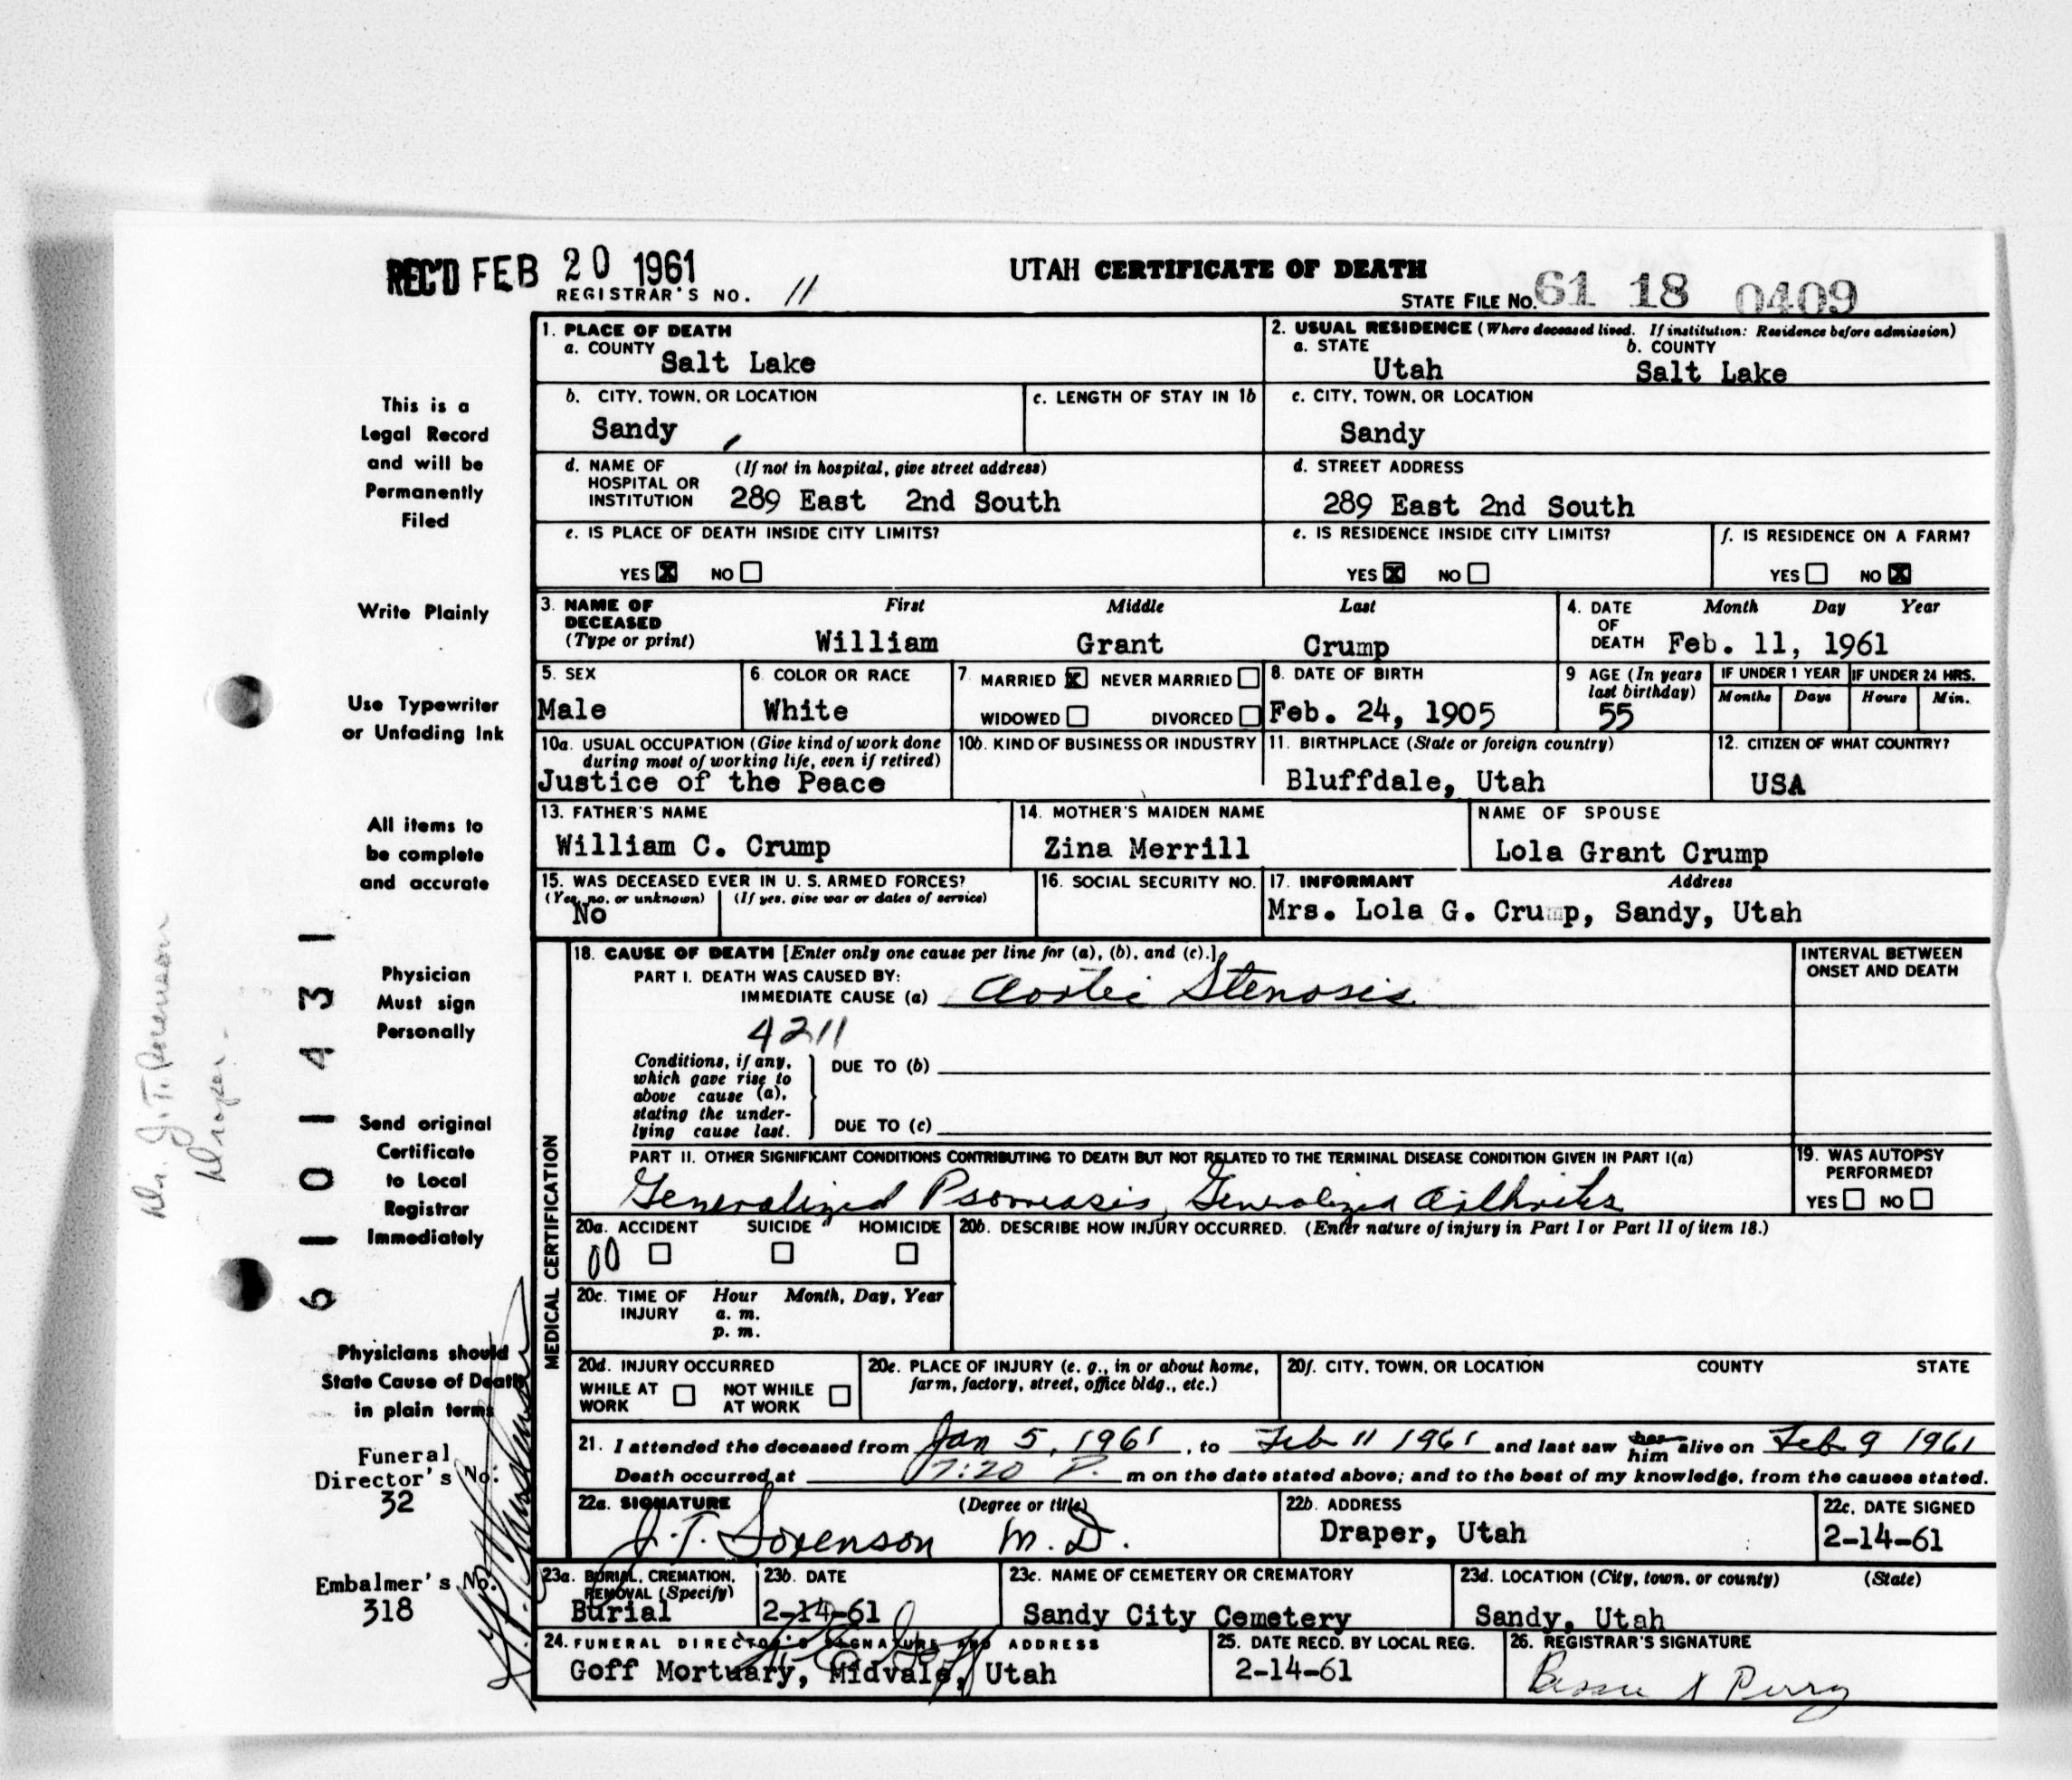 REC'D FEB 20 1961
REGISTRAR'S NO. 11
UTAH CERTIFICATE OF DEATH
STATE FILE NO. 61 18 0409
1. PLACE OF DEATH
a. COUNTY Salt Lake
2. USUAL RESIDENCE (Where deceased lived. If institution: Residence before admission)
a. STATE Utah b. COUNTY Salt Lake
b. CITY, TOWN, OR LOCATION Sandy
c. LENGTH OF STAY IN 1b
c. CITY, TOWN, OR LOCATION Sandy
d. NAME OF HOSPITAL OR INSTITUTION (If not in hospital, give street address) 289 East 2nd South
d. STREET ADDRESS 289 East 2nd South
e. IS PLACE OF DEATH INSIDE CITY LIMITS?
YES X NO
e. IS RESIDENCE INSIDE CITY LIMITS?
YES X NO
f. IS RESIDENCE ON A FARM?
YES NO X
3. NAME OF DECEASED (Type or print) First Middle Last
William Grant Crump
4. DATE OF DEATH Month Day Year
Feb. 11, 1961
5. SEX Male
6. COLOR OR RACE White
7. MARRIED X NEVER MARRIED
WIDOWED DIVORCED
8. DATE OF BIRTH Feb. 24, 1905
9 AGE (In years last birthday) 55
IF UNDER 1 YEAR Months Days
IF UNDER 24 HRS. Hours Min.
10a. USUAL OCCUPATION (Give kind of work done during most of working life, even if retired)
Justice of the Peace
10b. KIND OF BUSINESS OR INDUSTRY
11. BIRTHPLACE (State or foreign country)
Bluffdale, Utah
12. CITIZEN OF WHAT COUNTRY?
USA
13. FATHER'S NAME
William C. Crump
14. MOTHER'S MAIDEN NAME
Zina Merrill
NAME OF SPOUSE
Lola Grant Crump
15. WAS DECEASED EVER IN U. S. ARMED FORCES?
(Yes, no, or unknown) (If yes, give war or dates of service)
No
16. SOCIAL SECURITY NO.
17. INFORMANT Address
Mrs. Lola G. Crump, Sandy, Utah
MEDICAL CERTIFICATION
18. CAUSE OF DEATH [Enter only one cause per line for (a), (b), and (c).]
PART I. DEATH WAS CAUSED BY:
IMMEDIATE CAUSE (a) Aortic Stenosis
4211
Conditions, if any, which gave rise to above cause (a), stating the underlying cause last.
DUE TO (b)
DUE TO (c)
INTERVAL BETWEEN ONSET AND DEATH
PART II. OTHER SIGNIFICANT CONDITIONS CONTRIBUTING TO DEATH BUT NOT RELATED TO THE TERMINAL DISEASE CONDITION GIVEN IN PART I(a)
Generalized Psoriasis, Generalized Arthritis
19. WAS AUTOPSY PERFORMED?
YES NO
20a. ACCIDENT SUICIDE HOMICIDE
00
20b. DESCRIBE HOW INJURY OCCURRED. (Enter nature of injury in Part I or Part II of item 18.)
20c. TIME OF INJURY Hour Month, Day, Year
a. m.
p. m.
20d. INJURY OCCURRED
WHILE AT WORK NOT WHILE AT WORK
20e. PLACE OF INJURY (e. g., in or about home, farm, factory, street, office bldg., etc.)
20f. CITY, TOWN, OR LOCATION COUNTY STATE
21. I attended the deceased from Jan 5, 1961, to Feb 11 1961 and last saw her him alive on Feb 9 1961
Death occurred at 7:20 P. m on the date stated above; and to the best of my knowledge, from the causes stated.
22a. SIGNATURE (Degree or title)
J. T. Sorenson M.D.
22b. ADDRESS
Draper, Utah
22c. DATE SIGNED
2-14-61
23a. BURIAL, CREMATION, REMOVAL (Specify)
Burial
23b. DATE
2-14-61
23c. NAME OF CEMETERY OR CREMATORY
Sandy City Cemetery
23d. LOCATION (City, town, or county) (State)
Sandy, Utah
24. FUNERAL DIRECTOR'S SIGNATURE AND ADDRESS
Goff Mortuary, Midvale, Utah
25. DATE RECD. BY LOCAL REG.
2-14-61
26. REGISTRAR'S SIGNATURE
Perry
This is a
Legal Record
and will be
Permanently
Filed
Write Plainly
Use Typewriter
or Unfading Ink
All items to
be complete
and accurate
Physician
Must sign
Personally
Send original
Certificate
to Local
Registrar
Immediately
Physicians should
State Cause of Death
in plain terms
Funeral
Director's No.
32
Embalmer's No.
318
6 1 0 1 4 3 1
Dr. J. T. Sorenson
Draper